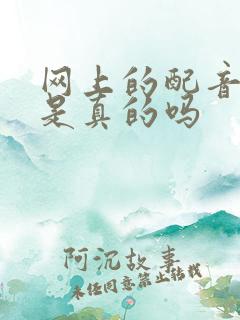 网上的配音
是真的吗
阿沉故事
未经同意禁止转载